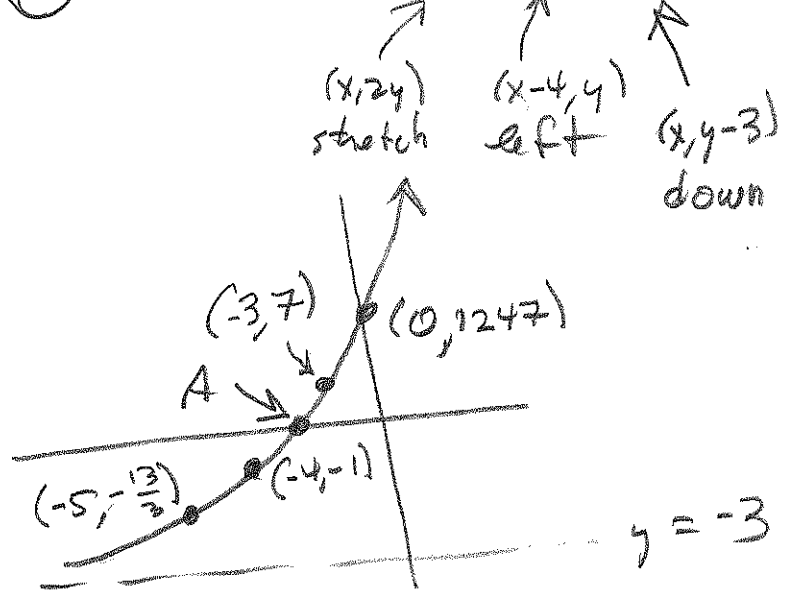 (x, 2y)
stretch
(x-4, y)
left
(x, y-3)
down
(-3, 7)
(0, 1247)
A
(-4, -1)
(-5, -13/3)
y = -3